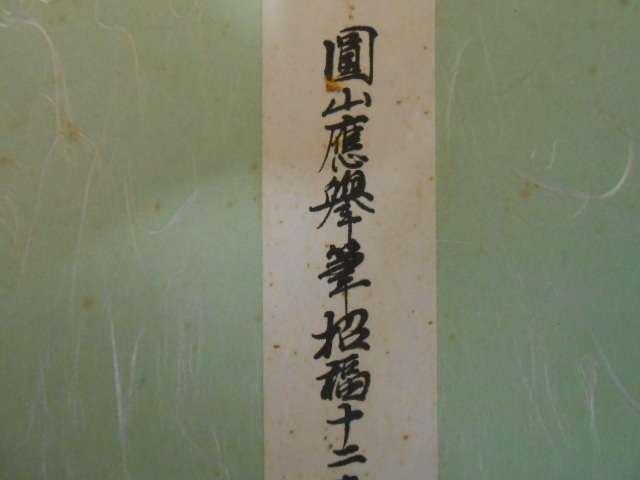 圓山應擧筆招福十二